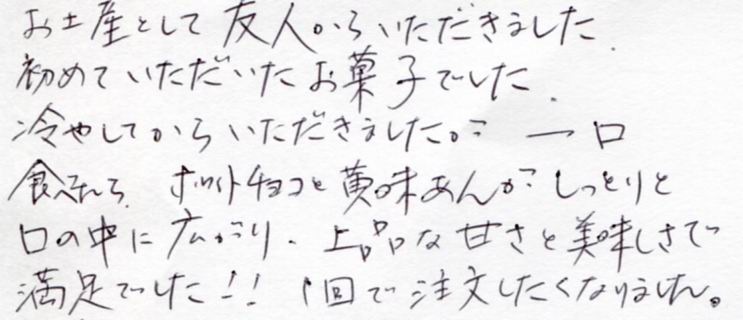 お土産として友人からいただきました.
初めていただいたお菓子でした.
冷やしてからいただきましたが 一口
食べたら、ホワイトチョコと黄味あんが しっとりと
口の中に広がり、上品な甘さと美味しさで
満足でした!! 1回で注文したくなりました。